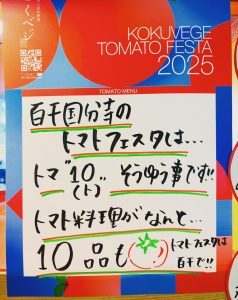 くベジ
KOKUVEGE
TOMATO FESTA
2025
TOMATO MENU
百千国分寺の
トマトフェスタは…
トマ"10"そうゆう事です!!
(ト)
トマト料理がなんと…
10品も
トマトフェスタは
百千で!!